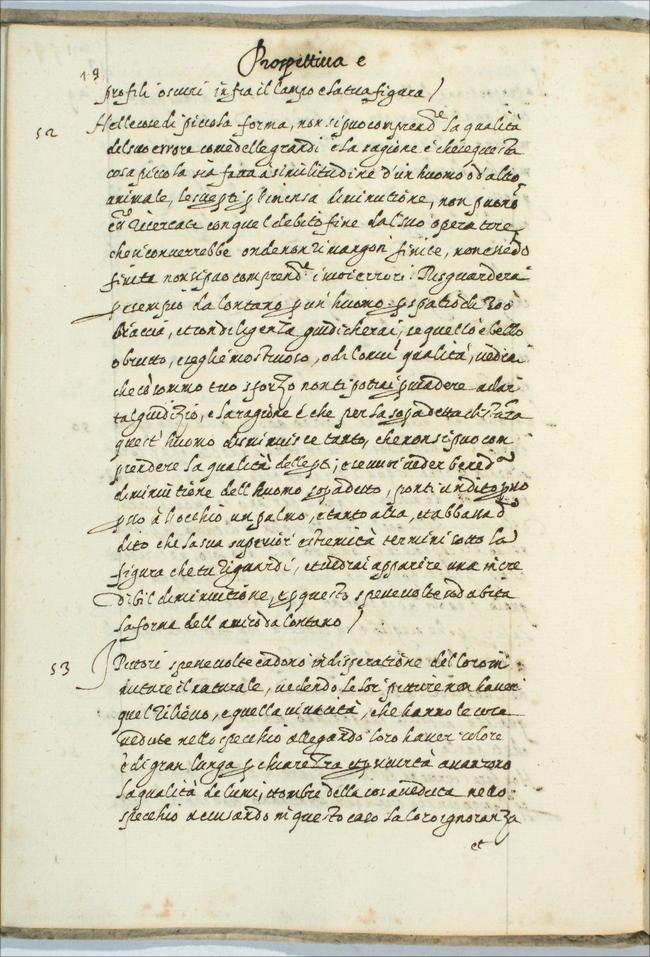 Prospettiua e
18
profili oscuri infra il campo e la tua figura /
52 Nelle cose di piccola forma, non si puo comprendᵉ la qualità
del suo errore come delle grandi e la ragione è che se questa
cosa piccola sia fatta à similitudine d'un huomo o d'altrº
animale, le sue pti p l'imensa diminutione, non puonº
ricercate con quel debito fine dal suo operatore
che si conuerrebbe onde non rimangon finite, non essedº
finita non si puo comprendᵉ i suoi errori: Risguarderai
p esempio da lontano p un' huomo p spatio di 300
braccia, et con diligenza giudicherai, se quello è bello
o brutto, o s'egli è mostruoso, o di comũ qualità, uedrai
che cõ sommo tuo sforzo non ti potrai psuadere a dar
tal giuditio, e la ragione è che per la sopadetta distãza
quest' huomo diminuisce tanto, che non si puo com
prendere la qualità delle pti; e se uuoi ueder bene dᵃ
diminutione dell huomo sopadetto, ponti un dito p uno
psso à l'occhio un palmo, e tanto alza, et abbassa dº
dito che la sua superior estremità termini sotto la
figura che tu riguardi, et uedrai apparire una incre
dibil diminutione, e p questo spesse uolte si dubita
la forma dell amico da lontano /
53 I Pittori spesse uolte cadono in disperatione del loro im
mitare il naturale, uedendo le lor pitture non hauer
quel rilieuo, e quella uiuacità, che hanno le cose
uedute nello specchio allegando loro hauer colore
è di gran lunga p chiarezza et p scurità auanzono
la qualità de lumi, et ombre della cosa ueduta nello
specchio accusando in questo caso la loro ignoranza
et